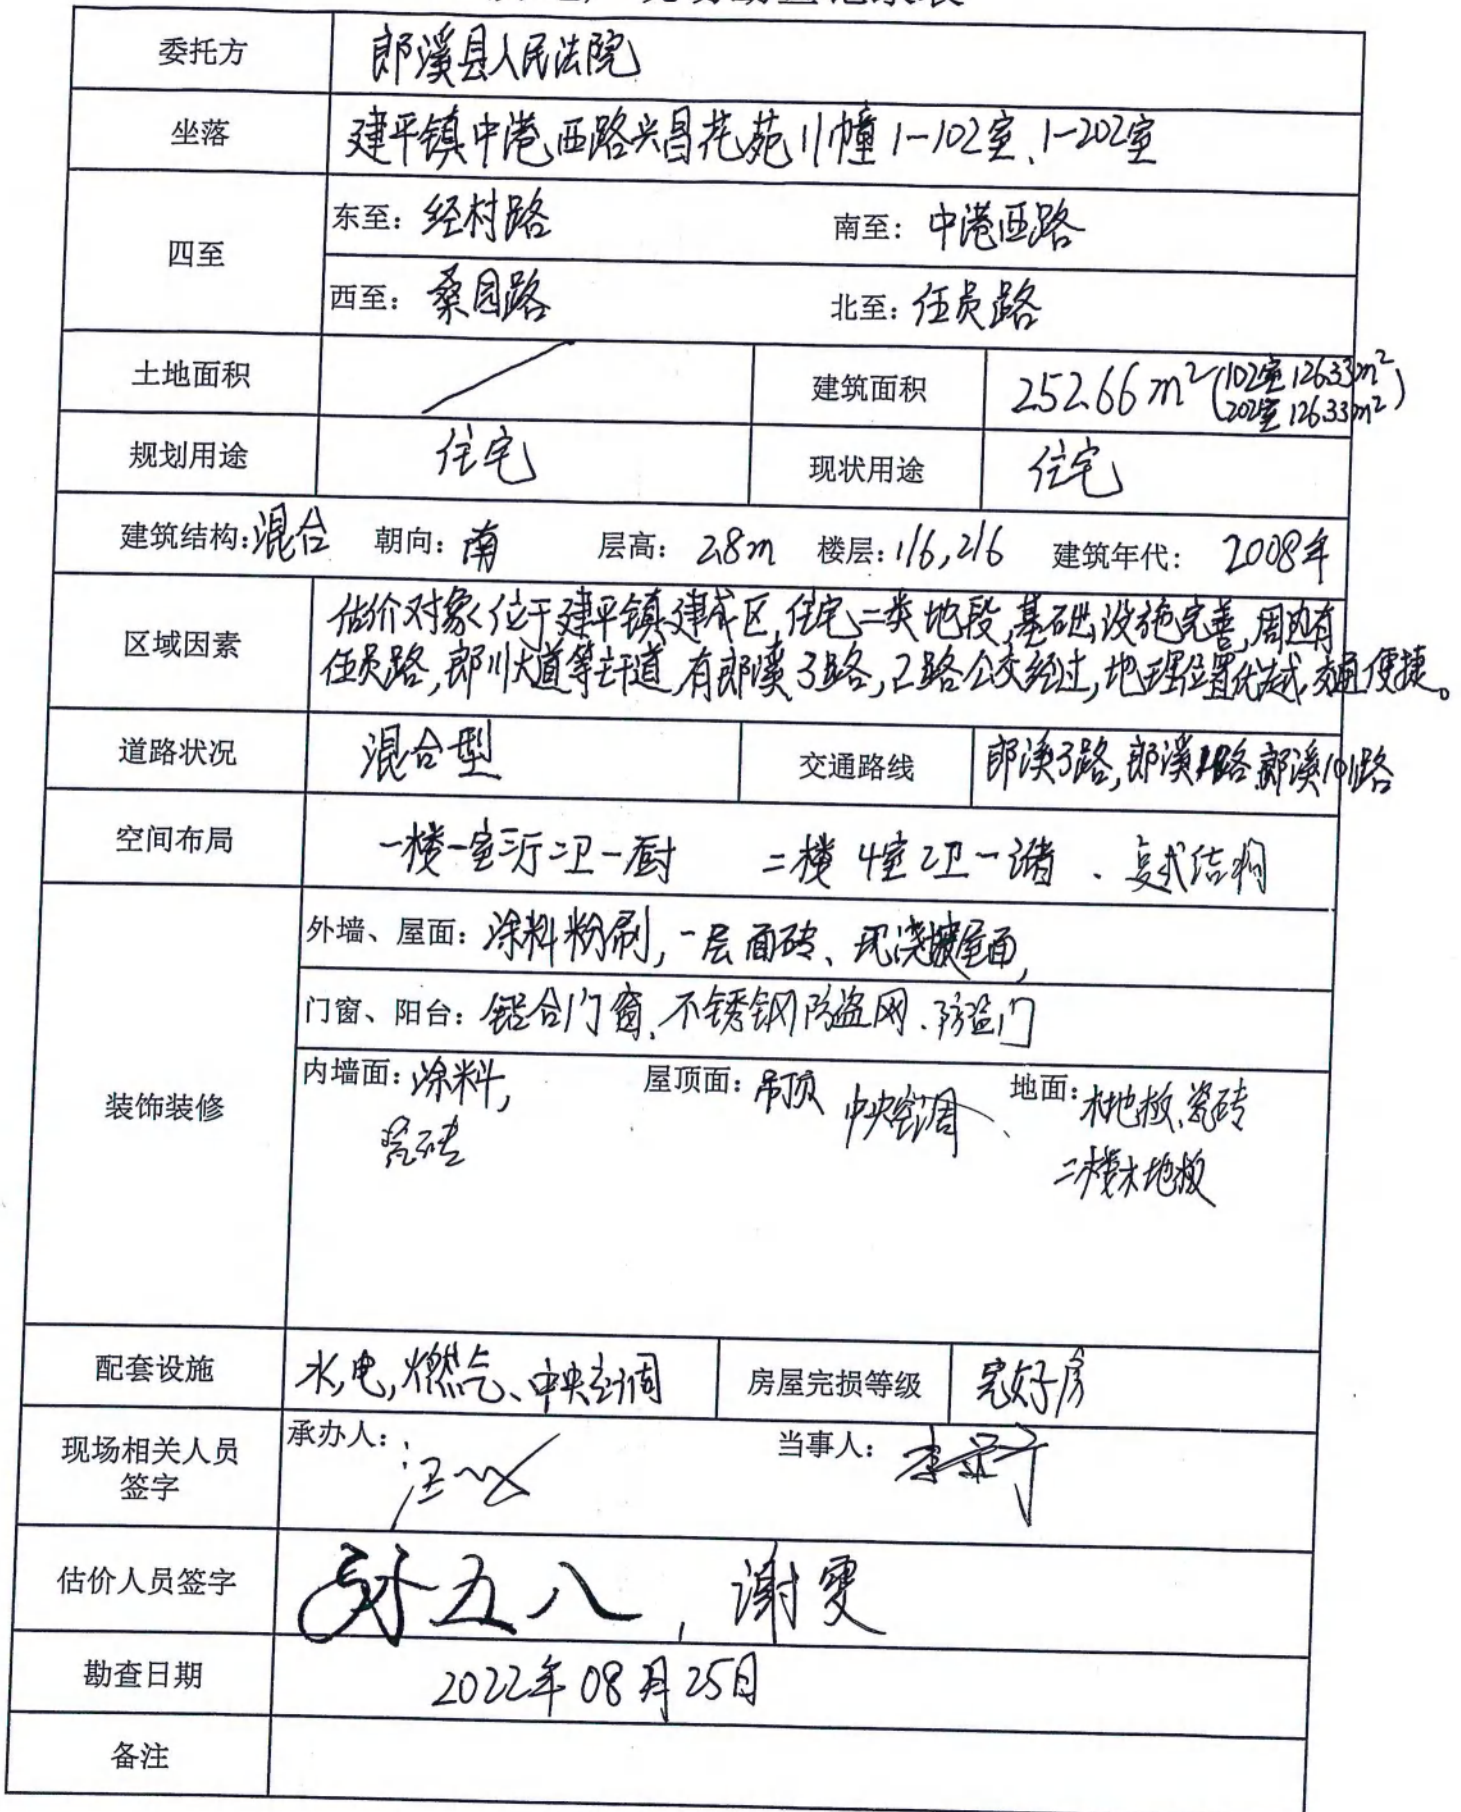 委托方 郎溪县人民法院
坐落 建平镇中港西路兴昌花苑11幢1-102室、1-202室
四至 东至：经村路 南至：中港西路
西至：桑园路 北至：伍员路
土地面积 建筑面积 252.66m²(102室126.33m²
202室126.33m²)
规划用途 住宅 现状用途 住宅
建筑结构：混合 朝向：南 层高：2.8m 楼层：1/6,2/6 建筑年代：2008年
区域因素 估价对象位于建平镇建成区,住宅二类地段,基础设施完善,周边有
伍员路,郎川大道等干道,有郎溪3路,2路公交经过,地理位置优越,交通便捷。
道路状况 混合型 交通路线 郎溪3路,郎溪 路,郎溪101路
空间布局 一楼一室三厅二卫一厨 二楼4室2卫一储、复式结构
外墙、屋面：涂料粉刷,一层面砖、现浇坡屋面,
门窗、阳台：铝合门窗、不锈钢防盗网、防盗门
装饰装修 内墙面：涂料, 屋顶面：吊顶 中央空调、 地面：木地板、瓷砖
瓷砖 二楼木地板
配套设施 水,电,燃气、中央空调 房屋完损等级 完好房
现场相关人员
签字 承办人： 当事人：
估价人员签字 五八, 谢雯
勘查日期 2022年08月25日
备注